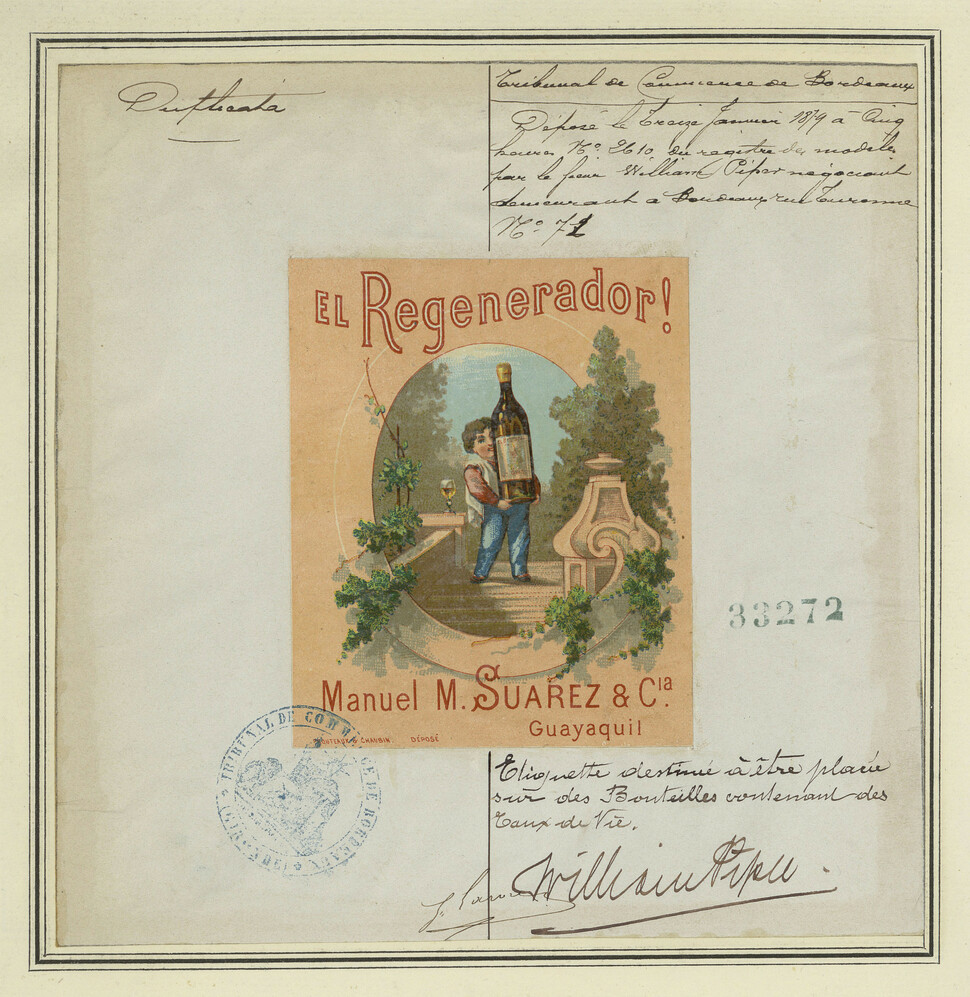 Duplicata
Tribunal de Commerce de Bordeaux
Déposé le Treize Janvier 1879 à Cinq
heures No. 2610 du registre des modèles
par le sieur William Piper négociant
demeurant à Bordeaux rue Turenne
No. 71
EL Regenerador!
33272
Manuel M. SUAREZ & Cia.
Guayaquil
& CHAUBIN. DÉPOSÉ
TRIBUNAL DE COMMERCE DE BORDEAUX
(GIRONDE)
Etiquette destinée à être placée
sur des Bouteilles contenant des
Eaux de Vie.
William Piper